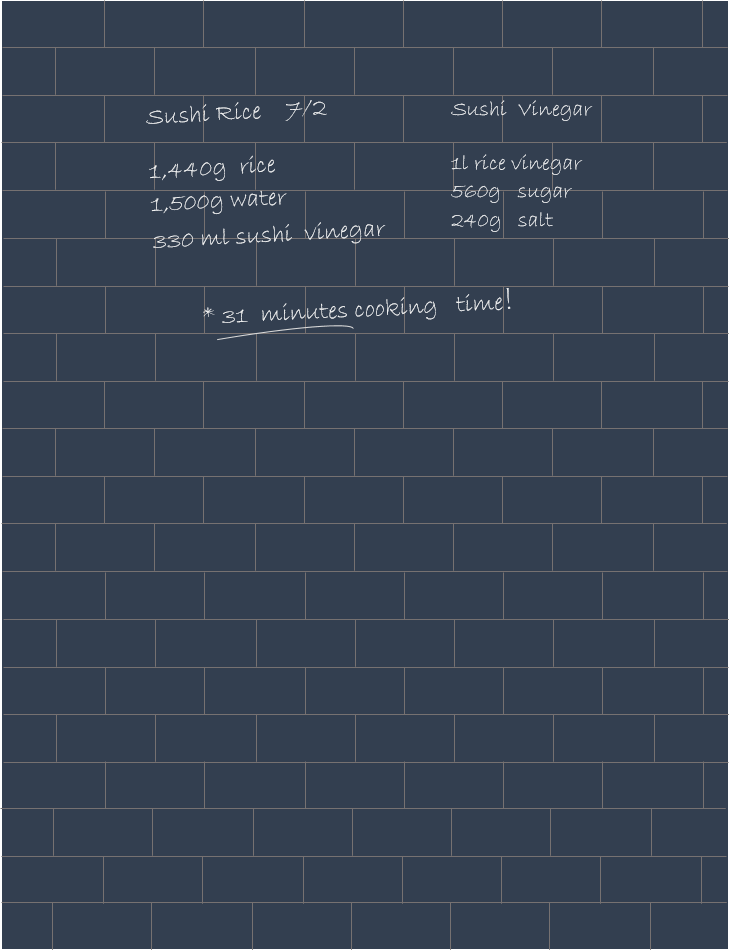 Sushi Rice 7/2
1,440g rice
1,500g water
330 ml sushi vinegar
Sushi Vinegar
1l rice vinegar
560g sugar
240g salt
* 31 minutes cooking time!